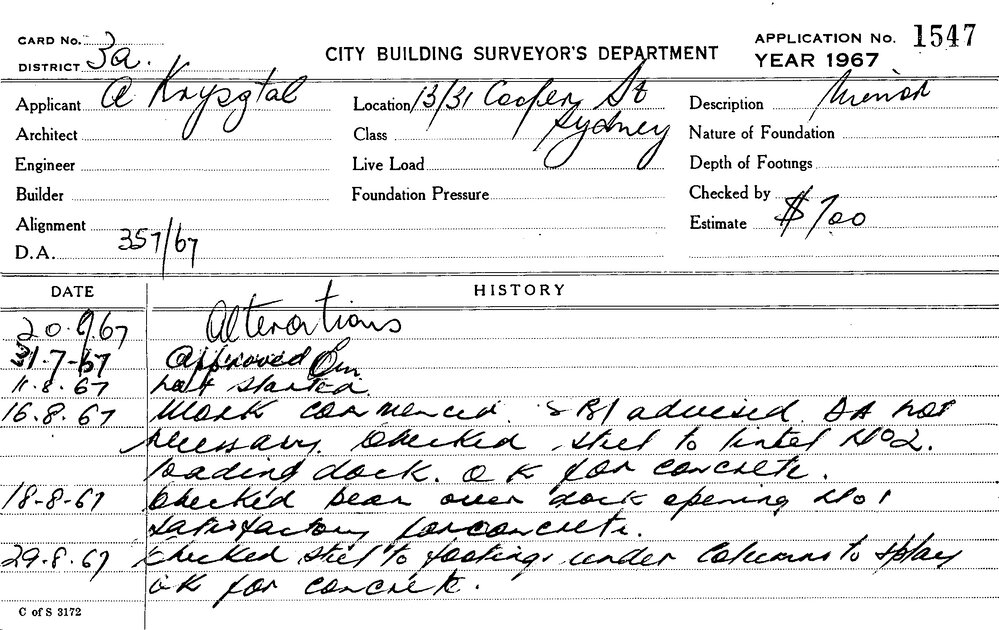 CARD No. 3a.
DISTRICT
CITY BUILDING SURVEYOR'S DEPARTMENT
APPLICATION No. 1547
YEAR 1967
Applicant A Krysgtal
Location 13/31 Cooper St Sydney
Description Minor
Architect
Class
Nature of Foundation
Engineer
Live Load
Depth of Footings
Builder
Foundation Pressure
Checked by
Alignment
Estimate $700
D.A. 357/67
DATE HISTORY
20.6.67 Alterations
31.7.67 Approved
11.8.67 Not started
16.8.67 Work commenced. SBI advised DA not
necessary. Checked steel to lintel No 2.
loading dock. OK for concrete.
18-8-67 Checked beam over dock opening No 1
satisfactory for concrete.
29.8.67 Checked steel to footings under columns to splay
OK for concrete.
C of S 3172